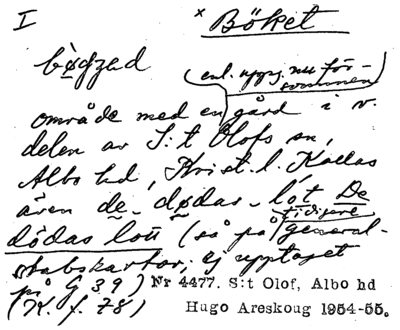 I
× Böket
bøgzad
(enl. uppg. nu för-
svunnen)
område med en gård i v.
delen av S:t Olofs sn,
Albo hd, Krist. l. Kallas
även de dødas lot De
dödas lott (så på tidigare general-
stabskartor, ej upptaget
på G 39)
(K. f. 78)
Nr 4477. S:t Olof, Albo hd
Hugo Areskoug 1954-55.